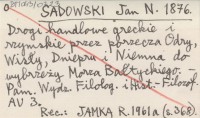 SADOWSKI Jan N. 1876.
Drogi handlowe greckie i
rzymskie przez porzecza Odry,
Wisły, Dniepru i Niemna do
wybrzeży Morza Bałtyckiego.
Pam. Wydz. Filolog. i Hist.-Filozof.
AU 3.
Rec.: JAMKA R. 1961a (s. 368).